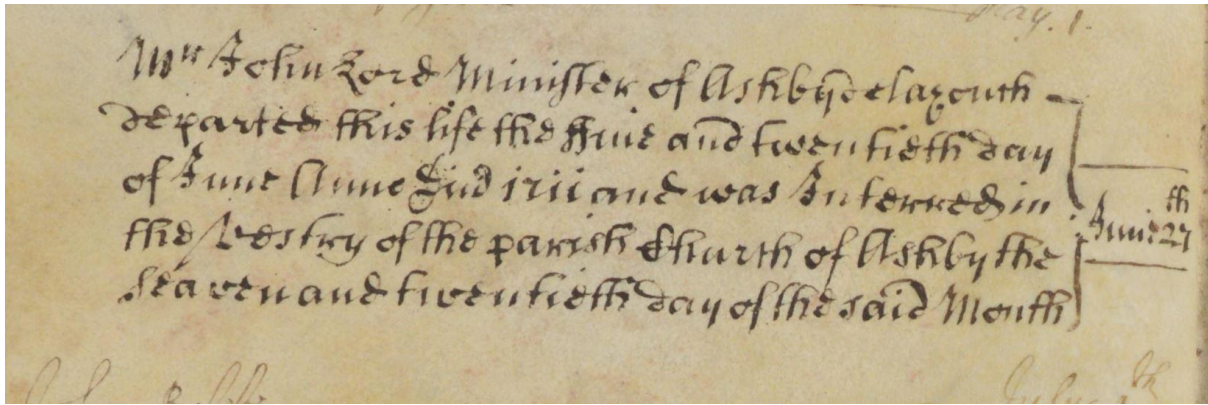 May. 1.
Mr John Lord Minister of Ashbydelazouch
departed this life the ffive and twentieth day
of June Anno Dnd 1711 and was Interred in
the Vestry of the parish Church of Ashby the
Seaven and twentieth day of the said Month
June 27th
July th